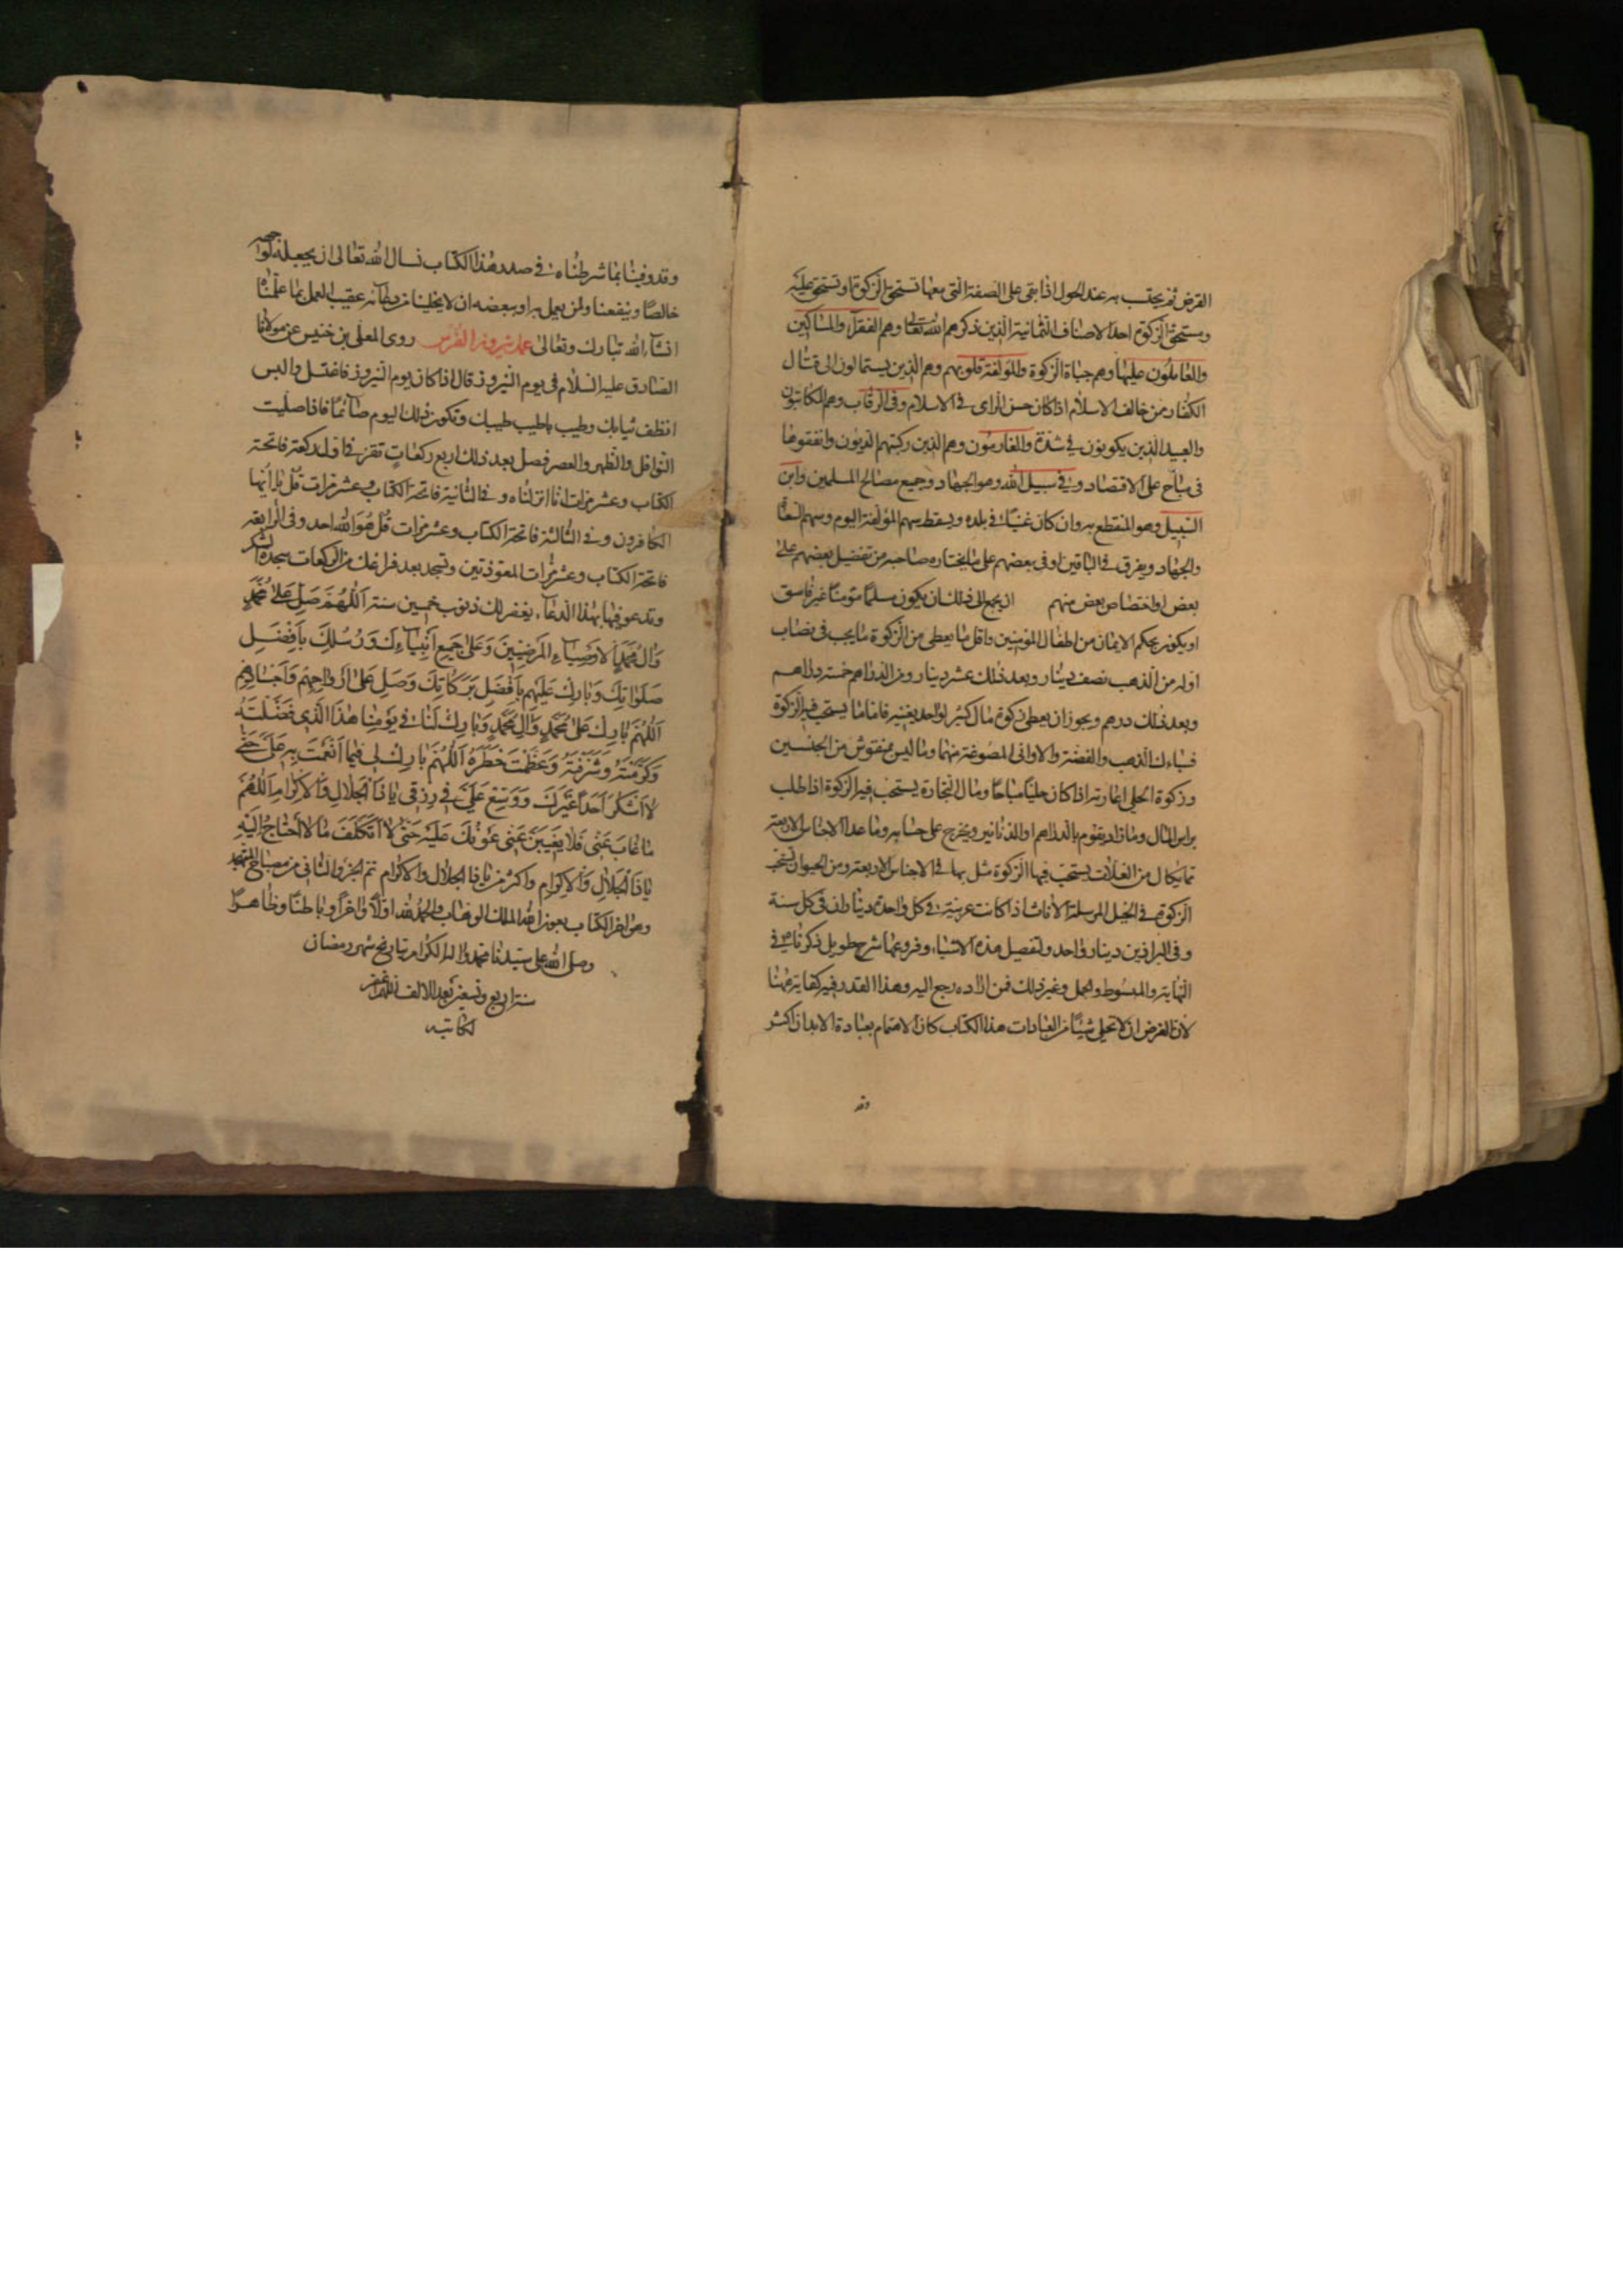 القرض ثم يحتسب به عند الحول اذا بقى على الصفة التى معها تستحق الزكوة او تستحق عليه
ومستحق الزكوة احد الاصناف الثمانية الذين ذكرهم الله تعالى وهم الفقرآء والمساكين
والعاملون عليها وهم جباة الزكوة والمؤلفة قلوبهم وهم الذين يستمالون الى قتال
الكفار ومن خالف الاسلام اذا كان حسن الراى فى الاسلام وفى الرقاب وهم المكاتبون
والعبيد الذين يكونون فى شدة والغارمون وهم الذين ركبتهم الديون وانفقوها
فى مباح على الاقتصاد وفى سبيل الله وهو الجهاد وجميع مصالح المسلمين وابن
السبيل وهو المنقطع به وان كان غنيا فى بلده ويسقط سهم المؤلفة اليوم وسهم السعاة
والجهاد ويفرق فى الباقين او فى بعضهم على ما يختاره صاحبه من تفضيل بعضهم على
بعض او اختصاص بعض منهم ان يجمع الى ذلك ان يكون مسلما مؤمنا غير فاسق
او يكون بحكم الايمان من اطفال المؤمنين واقل ما يعطى من الزكوة ما يجب فى نصاب
اوله من الذهب نصف دينار وبعد ذلك عشر دينار ومن الدراهم خمسة دراهم
وبعد ذلك درهم ويجوز ان يعطى زكوة مال كثير لواحد يغنيه فاما ما يستحب فيه الزكوة
فسبائك الذهب والفضة والاوانى المصوغة منهما وما ليس بمنقوش من الجنسين
وزكوة الحلى اعارته اذا كان حليا مباحا ومال التجارة يستحب فيه الزكوة اذا طلب
براس المال وما زاد ويقوم بالدراهم او الدنانير ويخرج على حسابه وما عدا الاجناس الاربعة
مما يكال من الغلات يستحب فيها الزكوة مثل بها فى الاجناس الاربعة ومن الحيوان تستحب
الزكوة فى الخيل المرسلة الاناث اذا كانت عربية فى كل واحدة ديناران فى كل سنة
وفى البراذين دينار واحد ولتفصيل هذه الاشياء وفروعها شرح طويل ذكرناه فى
النهاية والمبسوط والجمل وغير ذلك فمن اراده رجع اليه وهذا القدر فيه كفاية ههنا
لان الغرض ان لا نخلى شيئا من العبادات هذا الكتاب كان الاهتمام بعبادة الابدان اكثر
وقد
وقد وفينا بما شرطناه فى صدر هذا الكتاب نسال الله تعالى ان يجعله لوجهه
خالصا وينفعنا ولمن يعمل به او ببعضه ان لا يخلينا من دعائه عقيب العمل بما علمناه
انشاء الله تبارك وتعالى عمل نيروز الفرس روى المعلى بن خنيس عن مولانا
الصادق عليه السلام فى يوم النيروز قال اذا كان يوم النيروز فاغتسل والبس
انظف ثيابك وطيب باطيب طيبك وتكون ذلك اليوم صائما فاذا صليت
النوافل والظهر والعصر فصل بعد ذلك اربع ركعات تقرء فى اول ركعة فاتحة
الكتاب وعشر مرات انا انزلناه وفى الثانية فاتحة الكتاب وعشر مرات قل يا ايها
الكافرون وفى الثالثة فاتحة الكتاب وعشر مرات قل هو الله احد وفى الرابعة
فاتحة الكتاب وعشر مرات المعوذتين وتسجد بعد فراغك من الركعات سجدة الشكر
وتدعو فيها بهذا الدعاء يغفر لك ذنوب خمسين سنة اَللّهُمَّ صَلِّ عَلى مُحَمَّدٍ
وَالِ مُحَمَّدٍ الاَوصِيَاءِ المَرضِيّينَ وَعَلى جَميعِ اَنبِيَاءِكَ وَرُسُلِكَ بِاَفضَلِ
صَلَوَاتِكَ وَبَارِك عَلَيهِم بِاَفضَلِ بَرَكَاتِكَ وَصَلِّ عَلى اَروَاحِهِم وَاَجسَادِهِم
اَللّهُمَّ بَارِك عَلى مُحَمَّدٍ وَالِ مُحَمَّدٍ وَبَارِك لَنَا فى يَومِنَا هذَا الَّذى فَضَّلتَهُ
وَكَرَّمتَهُ وَشَرَّفتَهُ وَعَظَّمتَ خَطَرَهُ اَللّهُمَّ بَارِك لى فيمَا اَنعَمتَ بِهِ عَلَىَّ حَتّى
لا اَشكُرَ اَحَدًا غَيرَكَ وَوَسِّع عَلَىَّ فى رِزقى يَا ذَا الجَلالِ وَالاِكرَامِ اَللّهُمَّ
مَا غَابَ عَنّى فَلا يَغيبَنَّ عَنّى عَونُكَ عَلَيهِ حَتّى لا اَتَكَلَّفَ مَا لا اَحتَاجُ اِلَيهِ
يَا ذَا الجَلالِ وَالاِكرَامِ واكثر من يا ذا الجلال والاكرام تم الجزو الثانى من مصباح المتهجد
وهو اخر الكتاب بعون الله الملك الوهاب والحمد لله اولا واخرا وباطنا وظاهرا
وصلى الله على سيدنا محمد واله الكرام بتاريخ شهر رمضان
سنة اربع وتسعين بعد الالف اللهم اغفر
لكاتبه